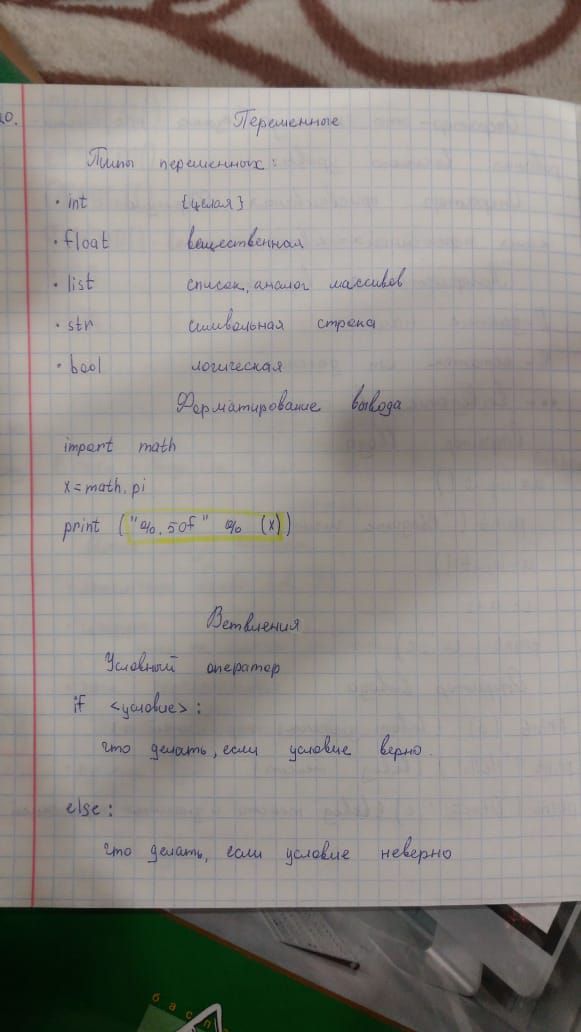 0.
Переменные
Типы переменных:
• int {целая}
• float вещественная
• list список, аналог массивов
• str символьная строка
• bool логическая
Форматирование вывода
import math
x=math.pi
print ("%.50f" % (x))
Ветвления
Условный оператор
if <условие>:
что делать, если условие верно.
else:
что делать, если условие неверно